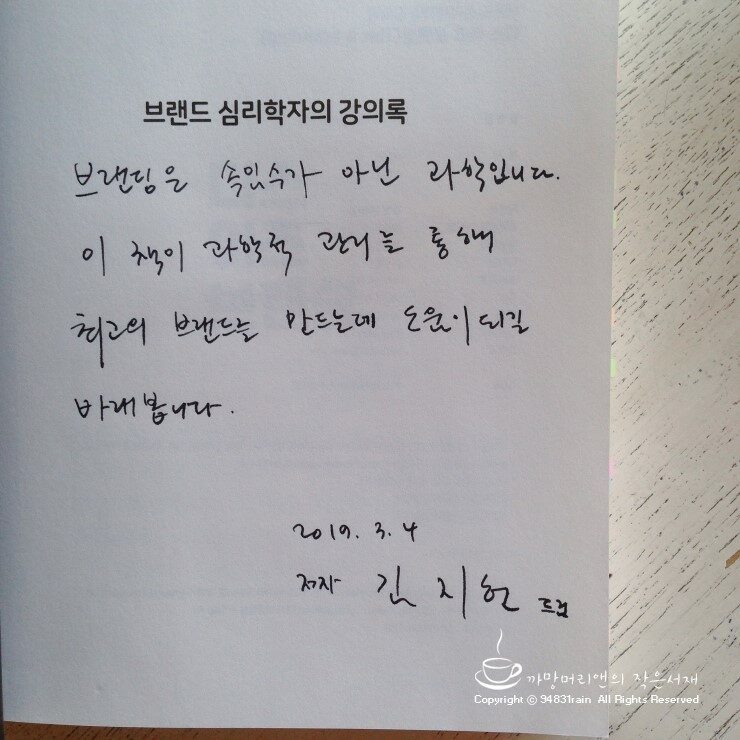 브랜드 심리학자의 강의록
브랜딩은 속임수가 아닌 과학입니다.
이 책이 과학적 관리를 통해
최고의 브랜드를 만드는데 도움이 되길
바래봅니다.
2019. 3. 4
저자 김지헌 드림
까망머리앤의 작은서재
Copyright © 94831rain All Rights Reserved